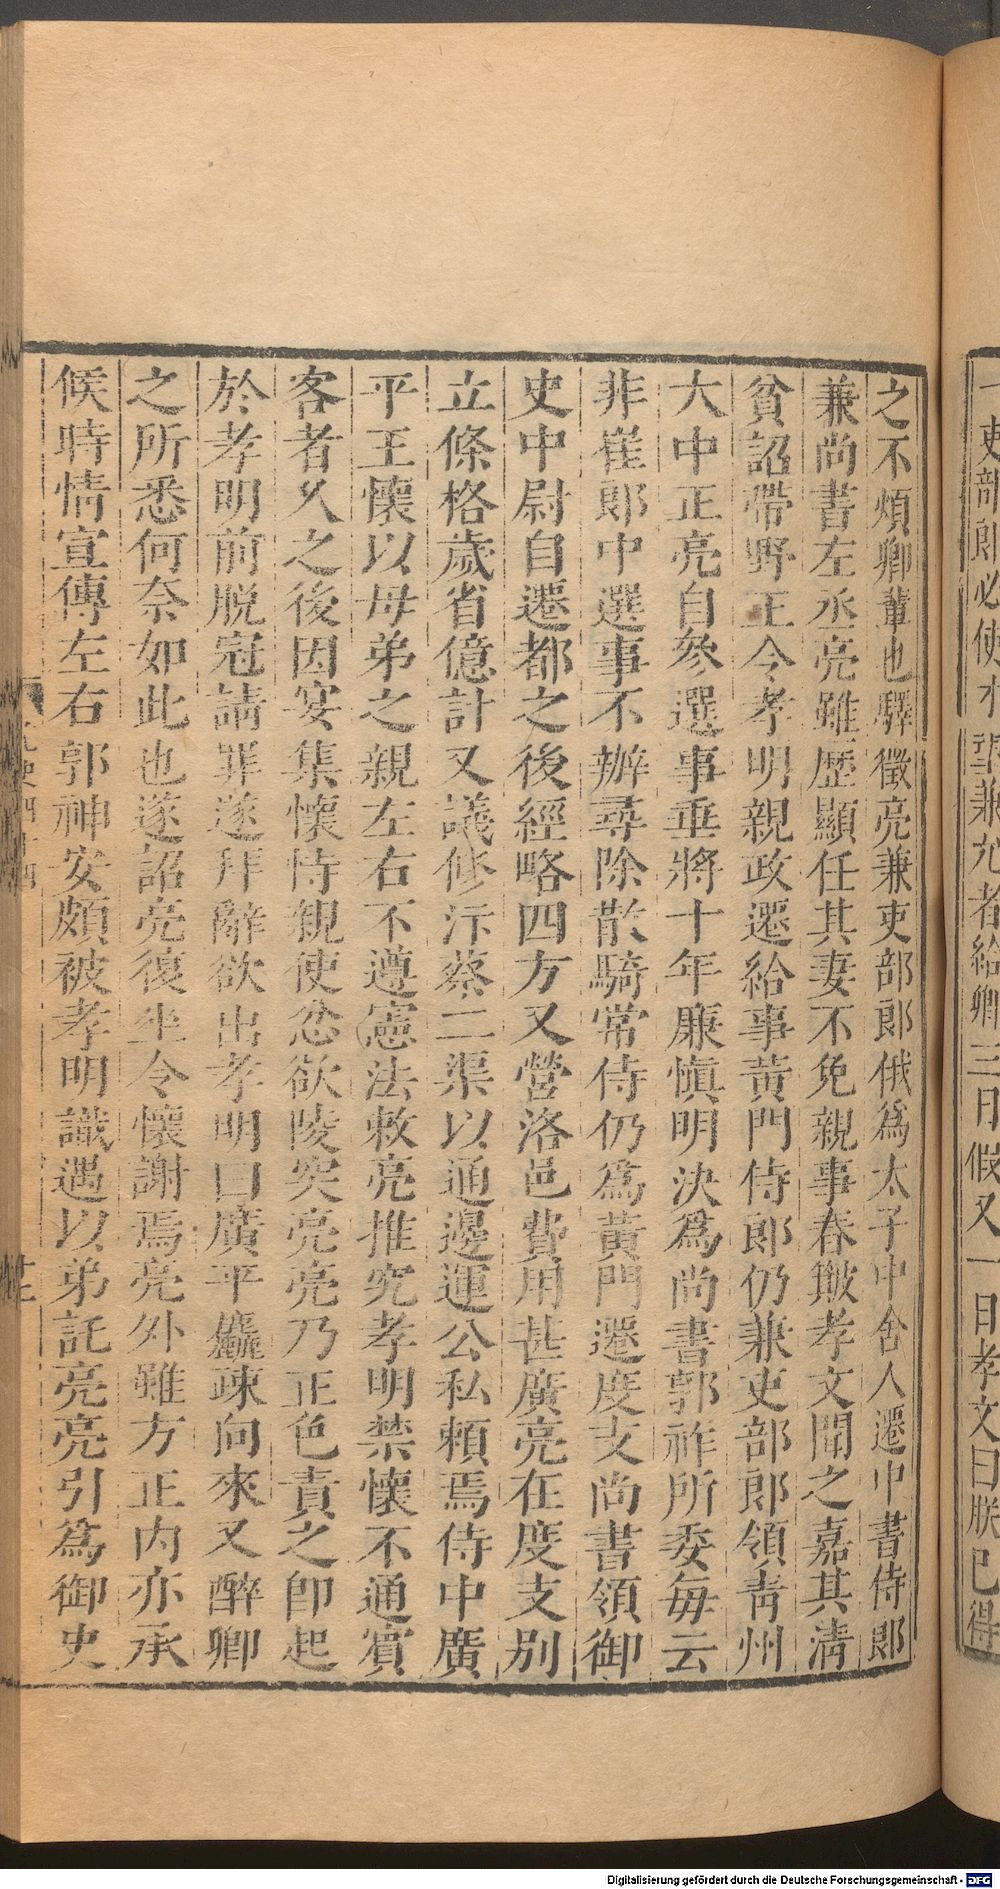 一吏部郎必使才望兼允者給卿三月假又一日孝文曰朕已得
之不煩卿輩也驛徵亮兼吏部郎俄爲太子中舍人遷中書侍郎
兼尚書左丞亮雖歷顯任其妻不免親事舂簸孝文聞之嘉其清
貧詔帶野王令孝明親政遷給事黄門侍郎仍兼吏部郎領青州
大中正亮自參選事垂將十年廉愼明決爲尚書郭祚所委每云
非崔郎中選事不辦尋除散騎常侍仍爲黄門遷度支尚書領御
史中尉自遷都之後經略四方又營洛邑費用甚廣亮在度支别
立條格歲省億計又議修汴蔡二渠以通邊運公私賴焉侍中廣
平王懷以母弟之親左右不遵憲法敕亮推究孝明禁懷不通賓
客者久之後因宴集懷恃親使忿欲陵突亮亮乃正色責之卽起
於孝明前脱冠請罪遂拜辭欲出孝明曰廣平麤疎向來又醉卿
之所悉何奈如此也遂詔亮復坐令懷謝焉亮外雖方正内亦承
候時情宣傳左右郭神安頗被孝明識遇以弟託亮亮引爲御史
Digitalisierung gefördert durch die Deutsche Forschungsgemeinschaft - DFG